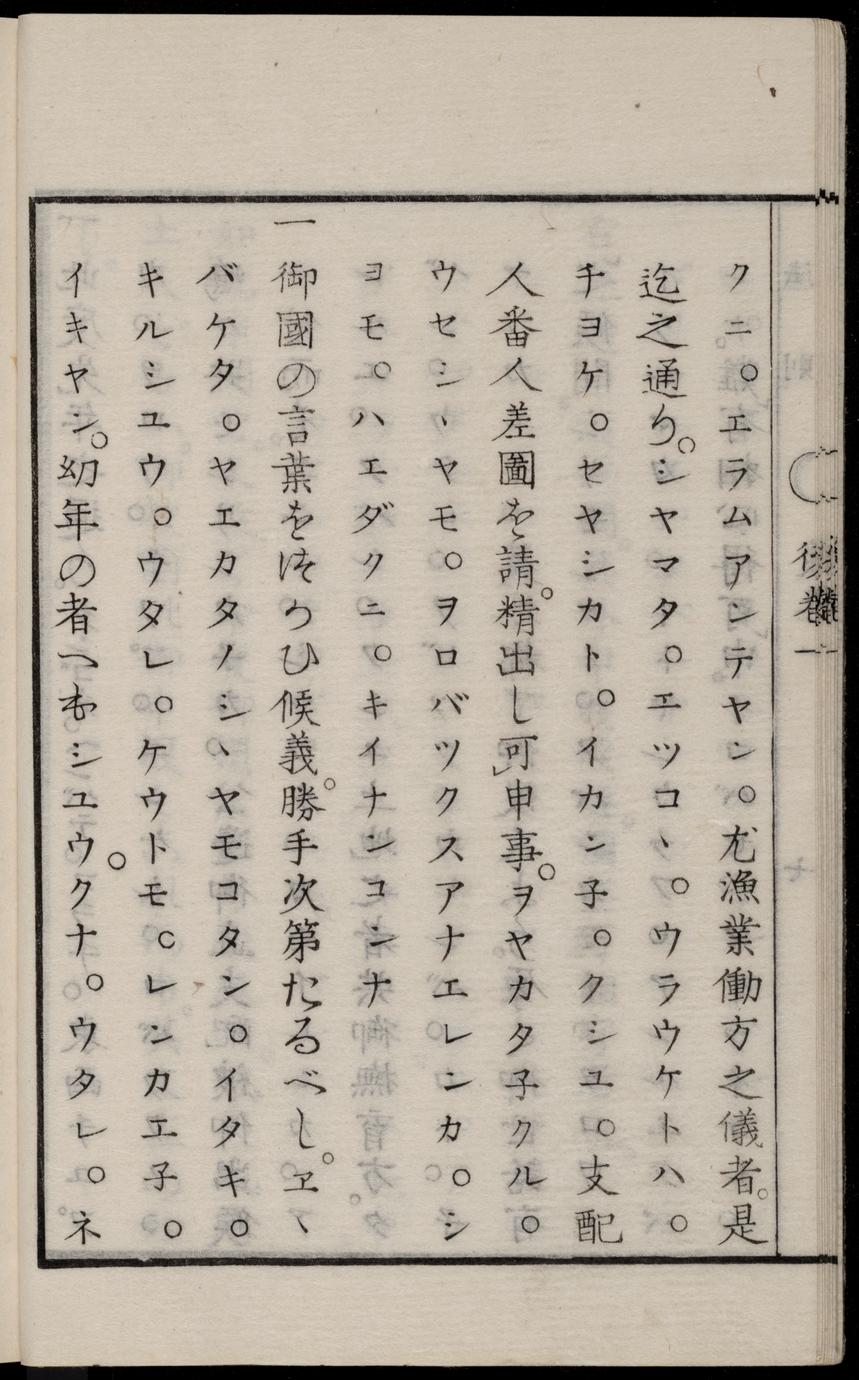 クニ。エラムアンテヤン。尤漁業働方之儀者。是
迄之通り。シヤマタ。エツコヽ。ウラウケトハ。
チヨケ。セヤシカト。イカン子。クシユ。支配
人番人差圖を請。精出し可申事。ヲヤカタ子クル。
ウセシヽヤモ。ヲロバツクスアナエレンカ。シ
ヨモ。ハエダクニ。キイナンコンナ
一御國の言葉をばつかひ候義。勝手次第たるべし。ヱヽ
バケタ。ヤエカタノシヽヤモコタン。イタキ。
キルシユウ。ウタレ。ケウトモ。レンカエ子。
イキヤン。幼年の者へもシユウ。クナ。ウタレ。ネ
巻一